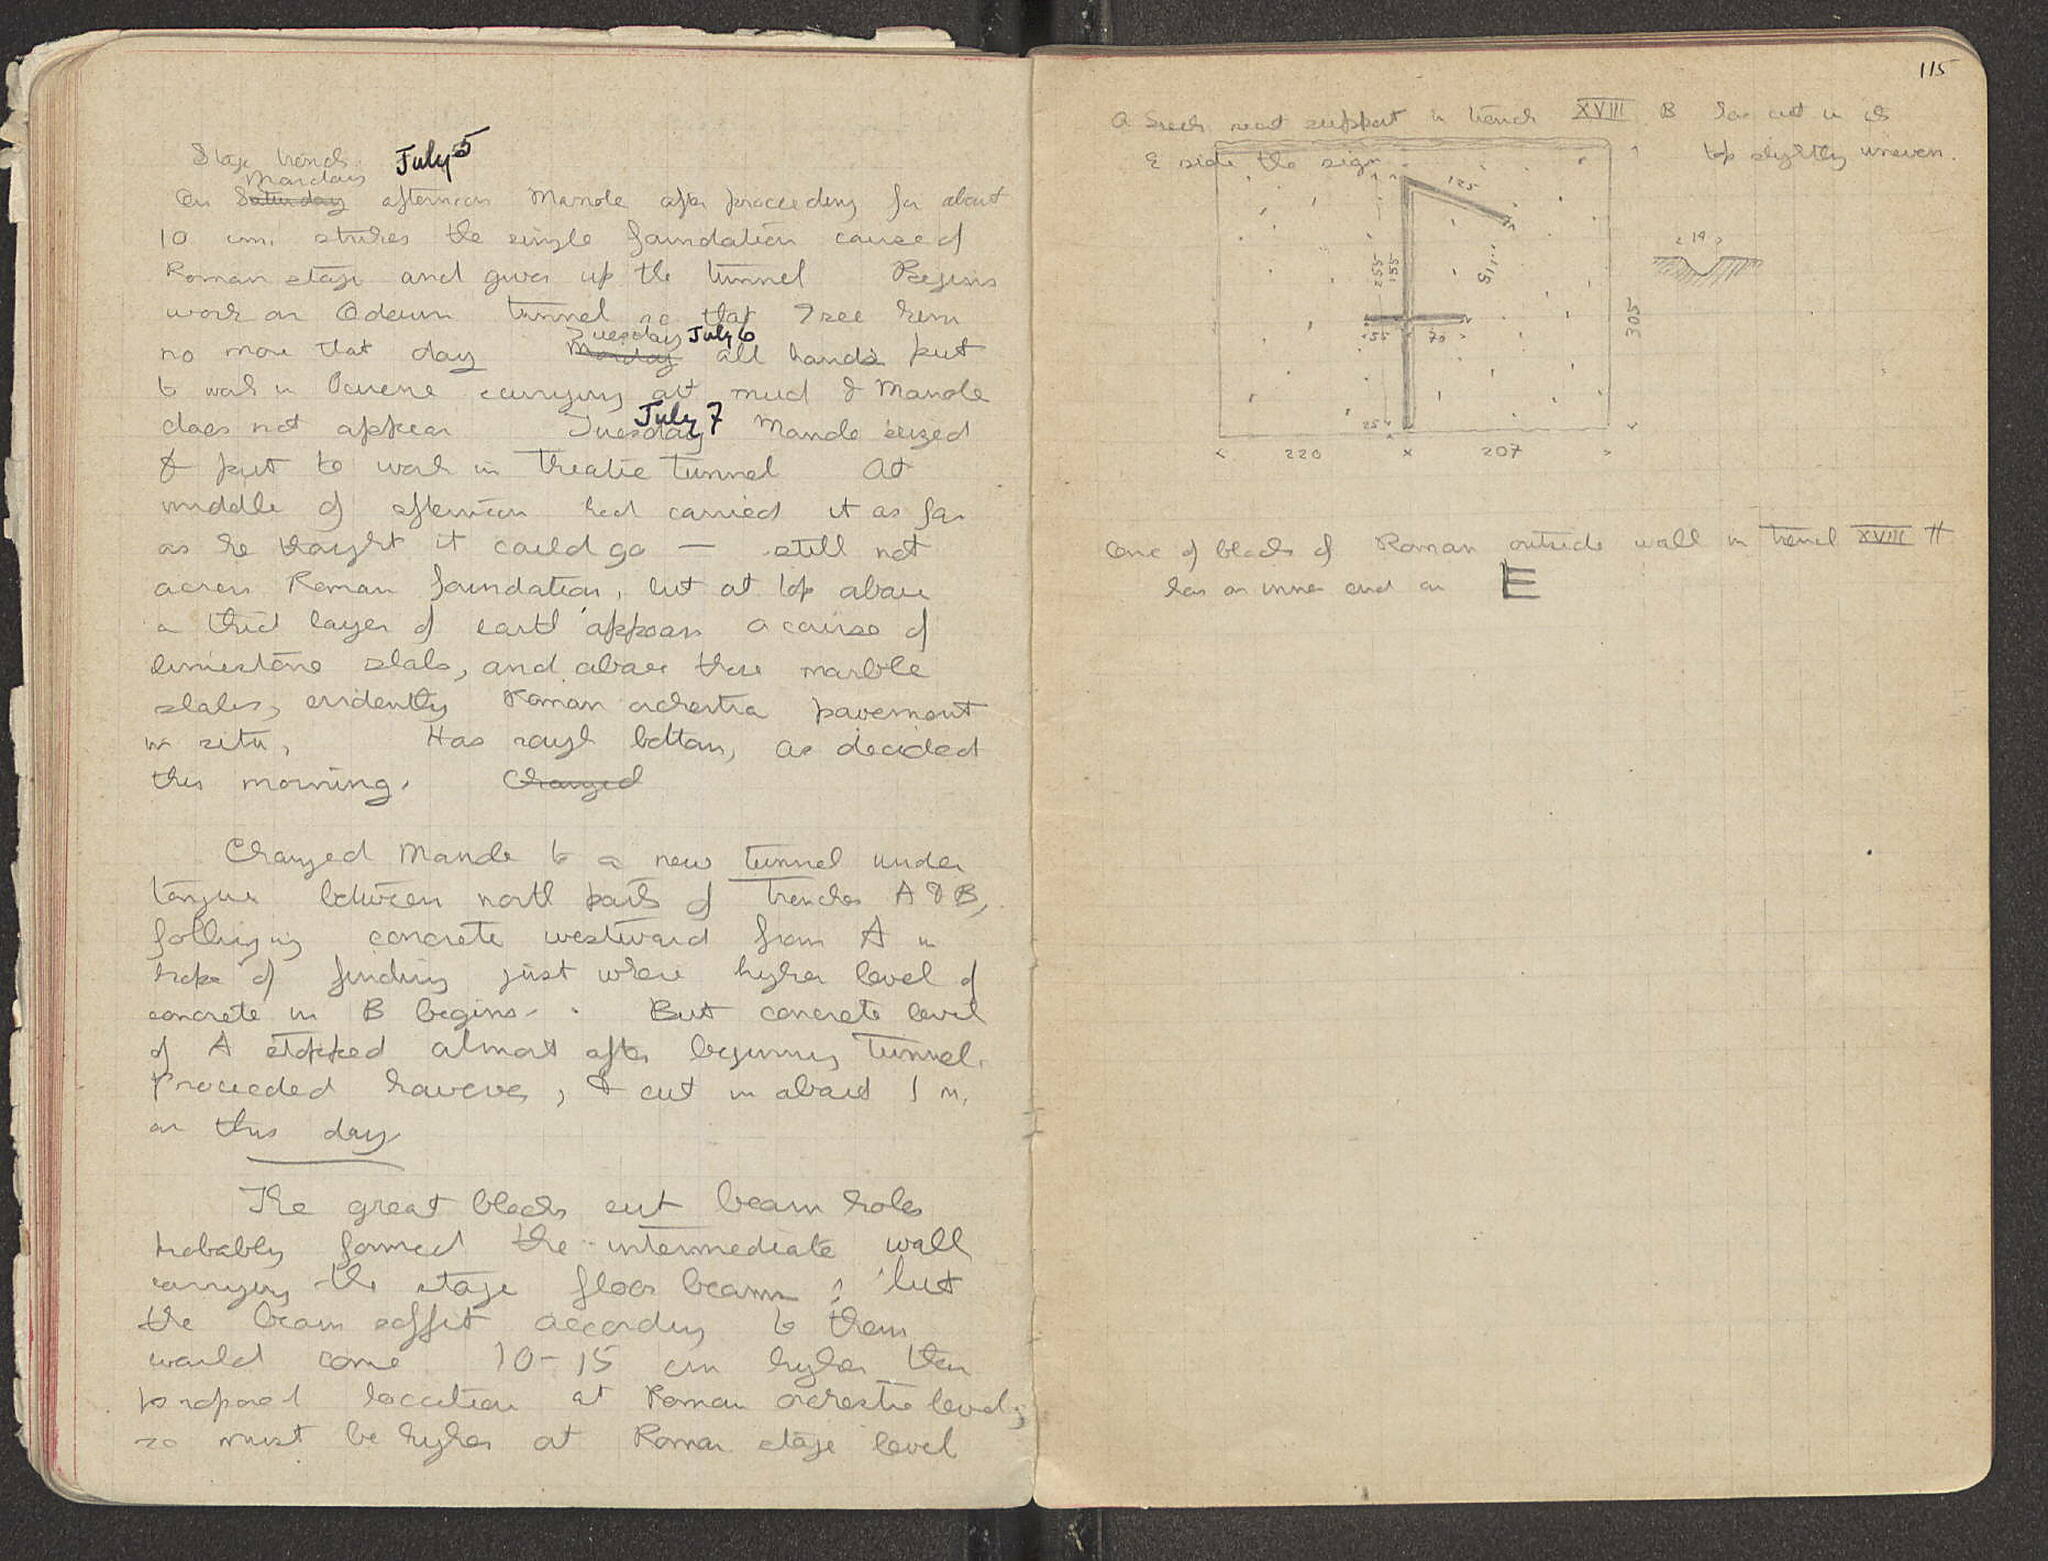 Stage trench. July 5
Monday
On Saturday afternoon Manole after proceeding for about
10 cm. strikes the single foundation course of
Roman stage and gives up the tunnel Begins
work on Odeum tunnel so that I see him
Tuesday July 6
no more that day Monday all hands put
to work in carrying out mud & Manole
July 7
does not appear Tuesday Manole seized
& put to work in theatre tunnel At
middle of afternoon had carried it as far
as he thought it could go — still not
across Roman foundation, but at top above
a thick layer of earth appears a course of
limestone slabs, and above these marble
slabs, evidently Roman orchestra pavement
in situ. Has rough bottom, as decided
this morning. Changed
Changed Manole to a new tunnel under
tongue between north parts of trenches A & B,
following concrete westward from A in
hope of finding just where higher level of
concrete in B begins. But concrete level
of A stopped almost after beginning tunnel.
Proceeded however, & cut in about 1 m.
on this day
The great blocks cut beam holes
probably formed the intermediate wall
carrying the stage floor beams; but
the beam soffit according to them
would come 10-15 cm higher than
proposed location at Roman orchestra level;
so must be higher at Roman stage level
115
A Greek seat support in trench XVIII B has cut in its
E side the sign top slightly uneven.
125
14
255
155
115
305
55 70
25
220 207
One of blocks of Roman outside wall in trench XVIII H
has on inner end an E